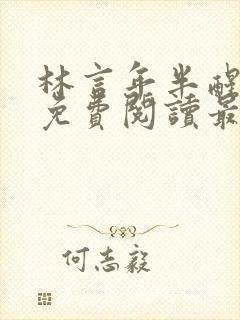 林言年半醒
免費閱讀最
何志毅